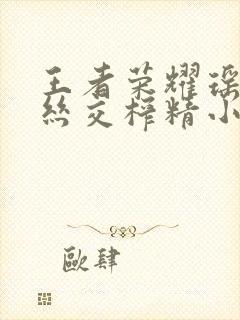 王者荣耀瑶
丝交榨精小
歐肆